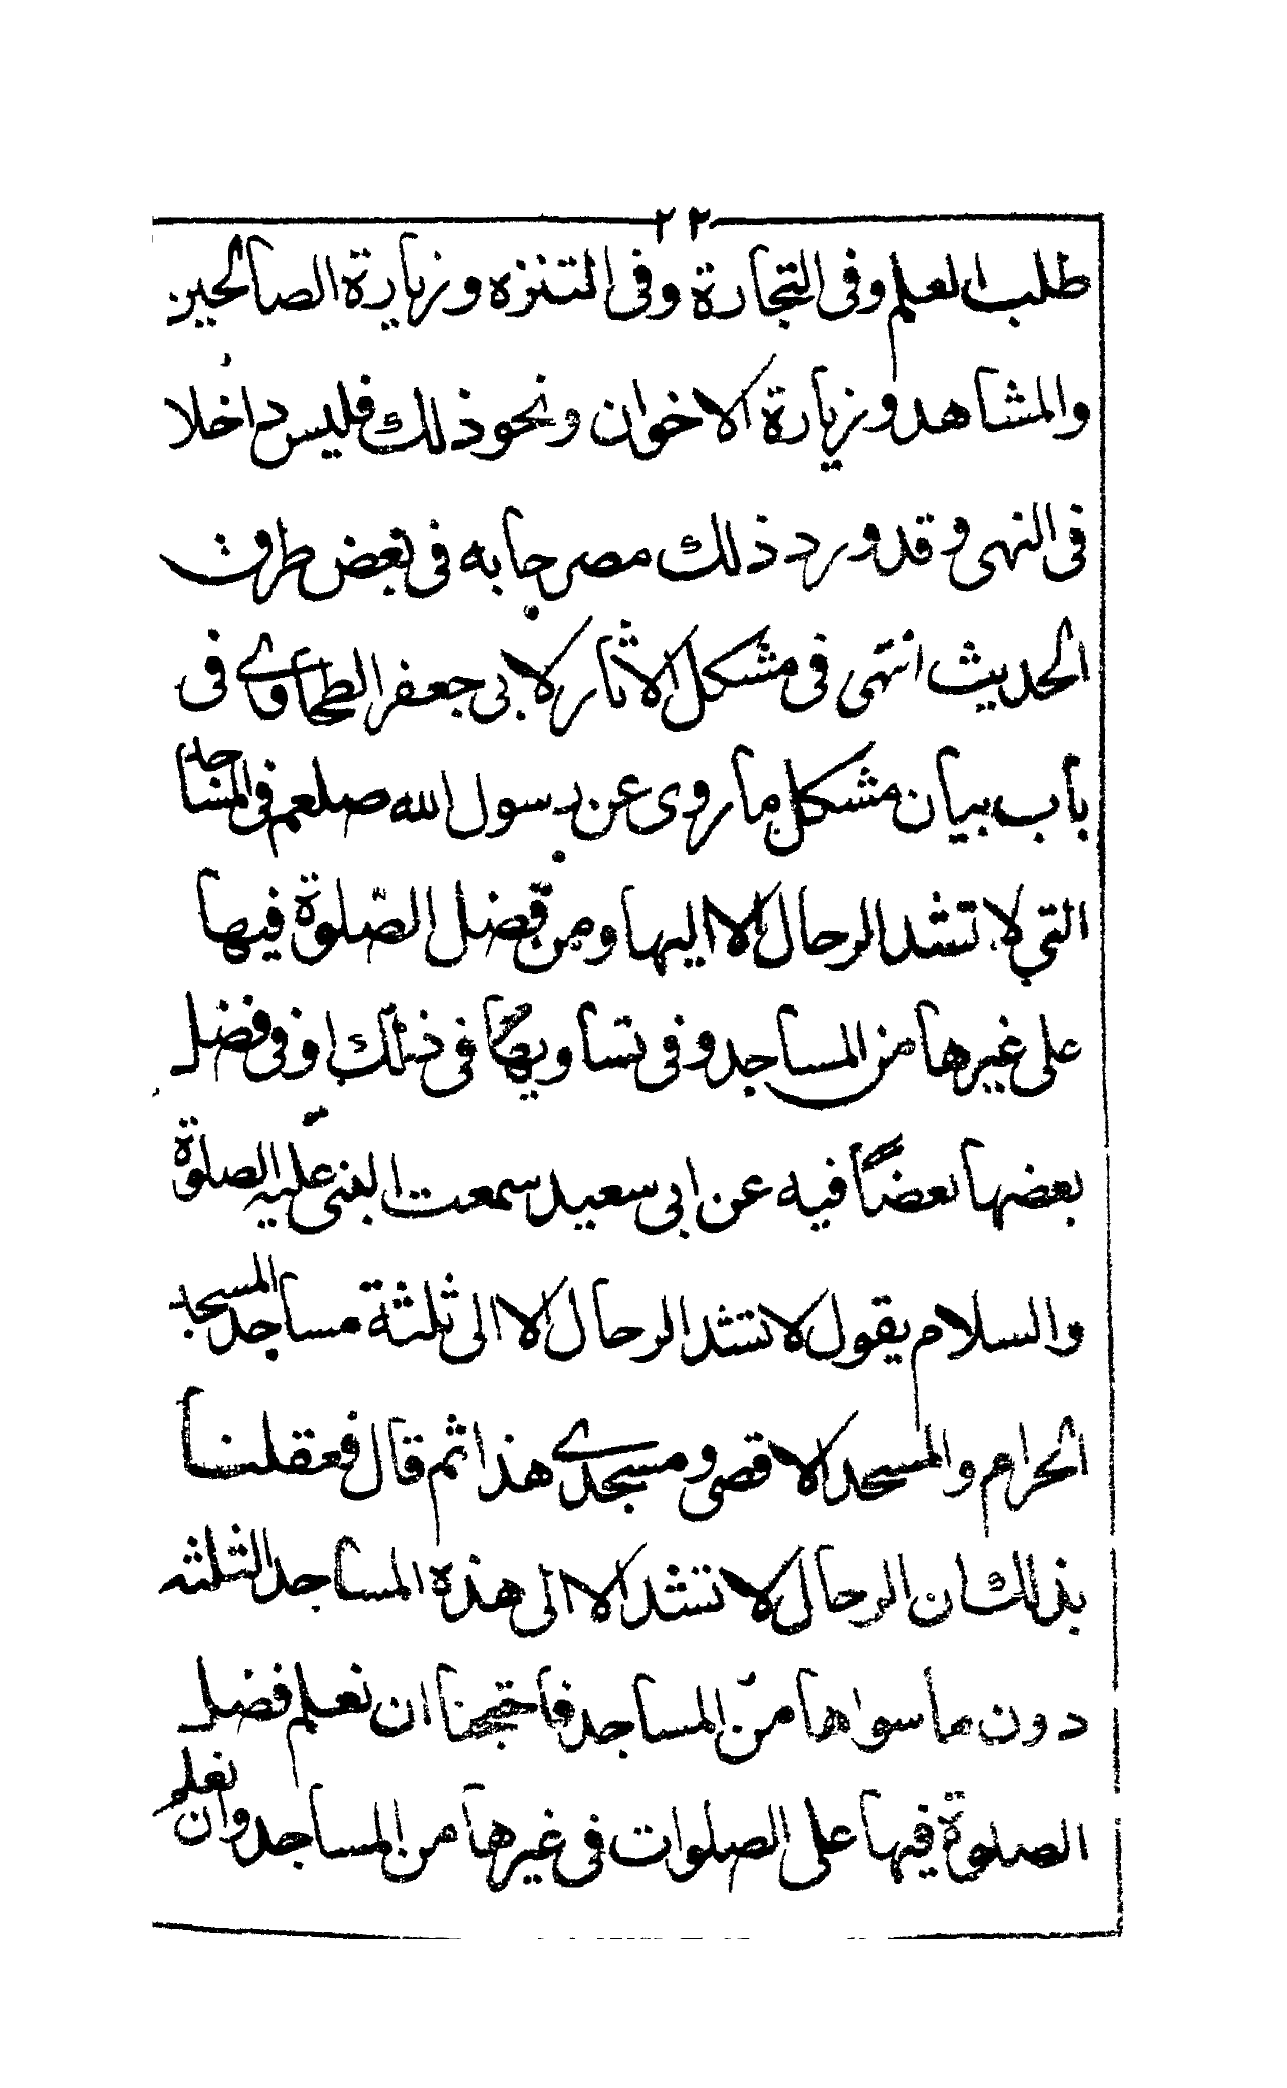 ٢٣
طلب العلم وفى التجارة وفى التنزه وزيارة الصالحين
والمشاهد وزيارة الاخوان ونحو ذلك فليس داخلا
فى النهى وقد ورد ذلك مصرحا به فى بعض طرق
الحديث انتهى فى مشكل الاثار لابى جعفر الطحاوى فى
باب بيان مشكل ما روى عن رسول الله صلعم فى المساجد
التى لا تشد الرحال الا اليها ومن فضل الصلوة فيها
على غيرها من المساجد وفى تساويها فى ذلك او فى فضل
بعضها بعضا فيه عن ابى سعيد سمعت النبى عليه الصلوة
والسلام يقول لا تشد الرحال الا الى ثلثة مساجد المسجد
الحرام والمسجد الاقصى ومسجدى هذا ثم قال فعقلنا
بذلك ان الرحال لا تشد الا الى هذه المساجد الثلثه
دون ما سواها من المساجد فاحتجنا ان نعلم فضل
الصلوة فيها على الصلوات فى غيرها من المساجد وان نعلم